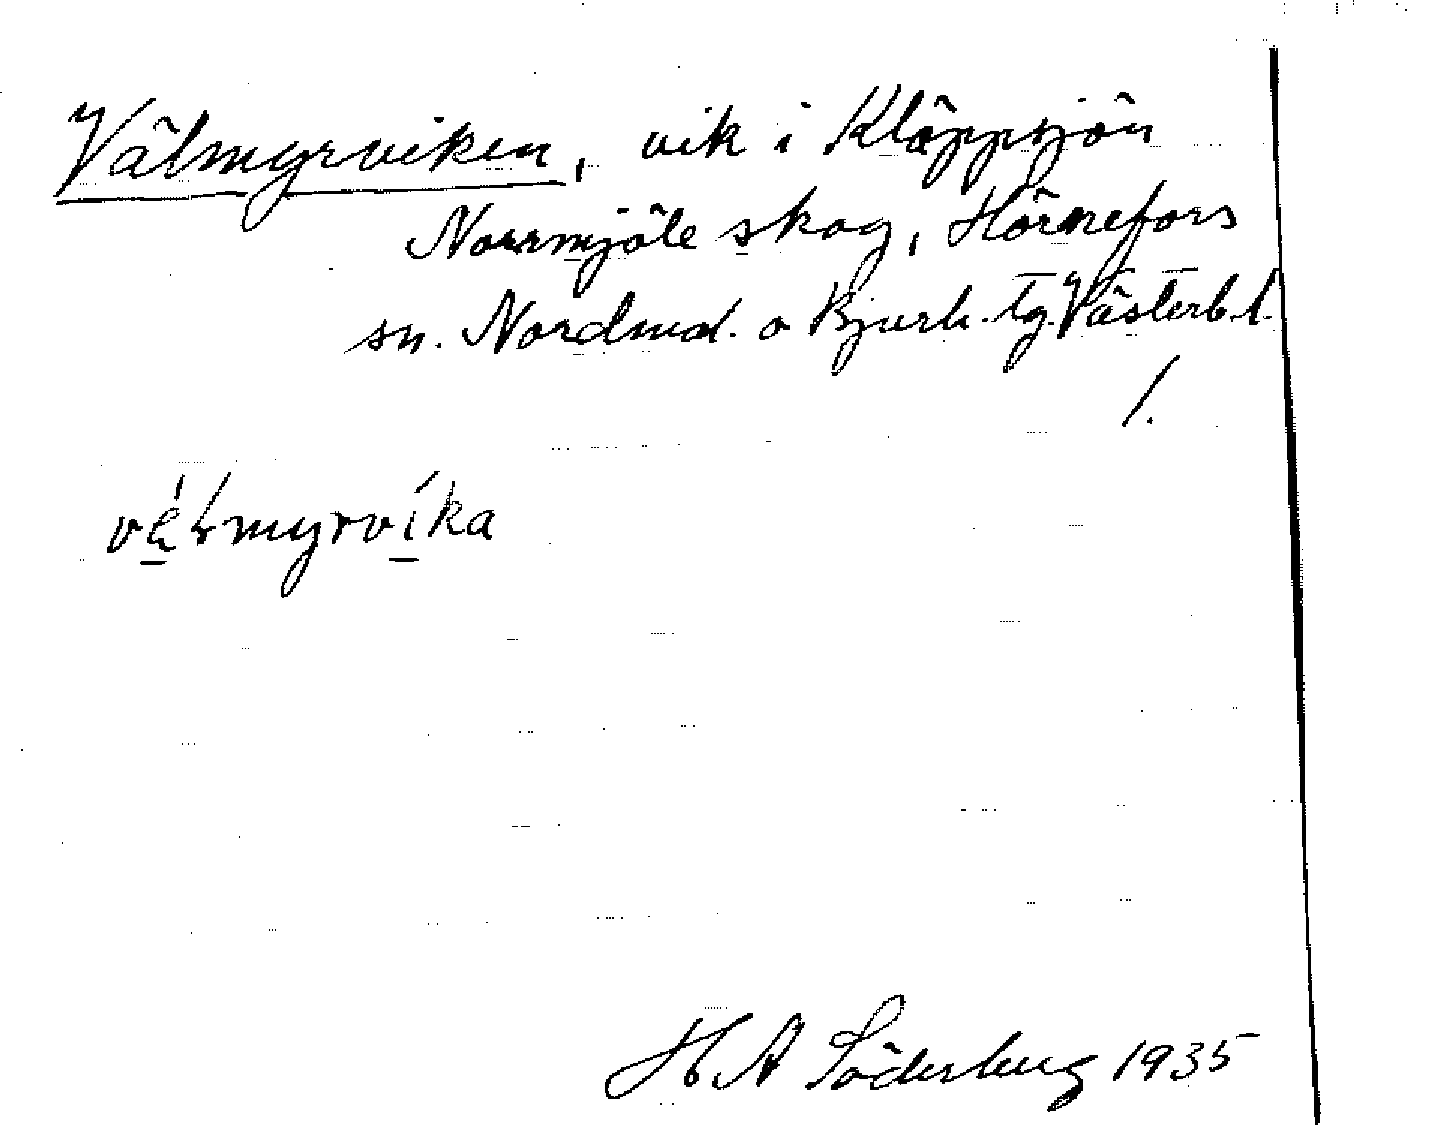 Välmyrviken, vik i Kläppsjön
Norrmjöle skog, Hörnefors
sn. Nordmal. o Bjurh. tg. Västerb. l.
/.
vèlmyrvíka
H A Söderberg 1935